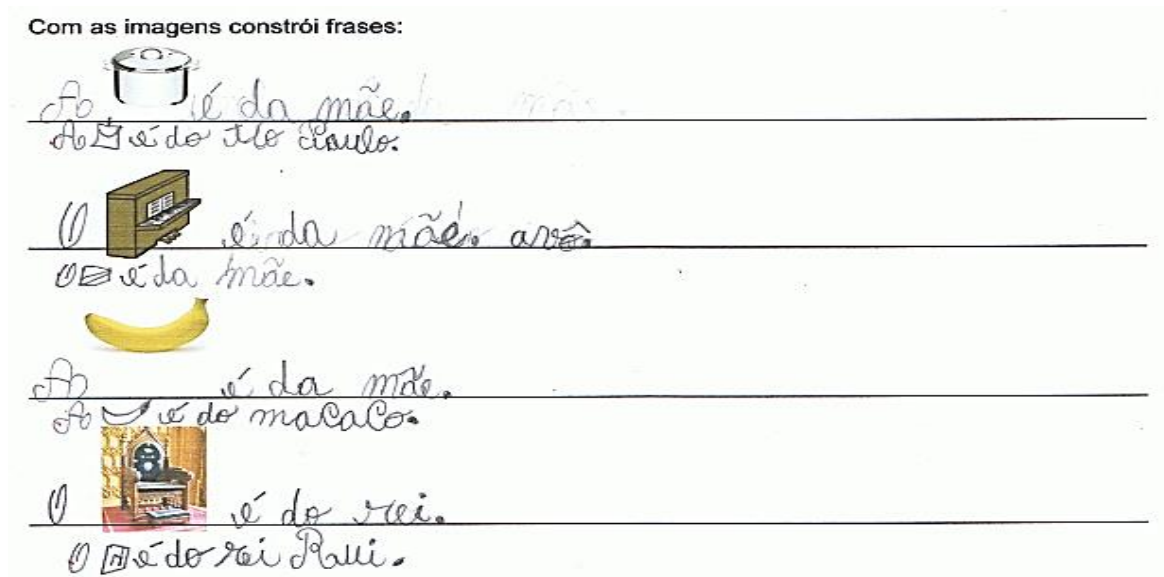 Com as imagens constrói frases:
A é da mãe.
A é do tio Paulo.
O é da mãe. avó.
O é da mãe.
A é da mãe.
A é do macaco.
O é do rei.
O é do rei Rui.